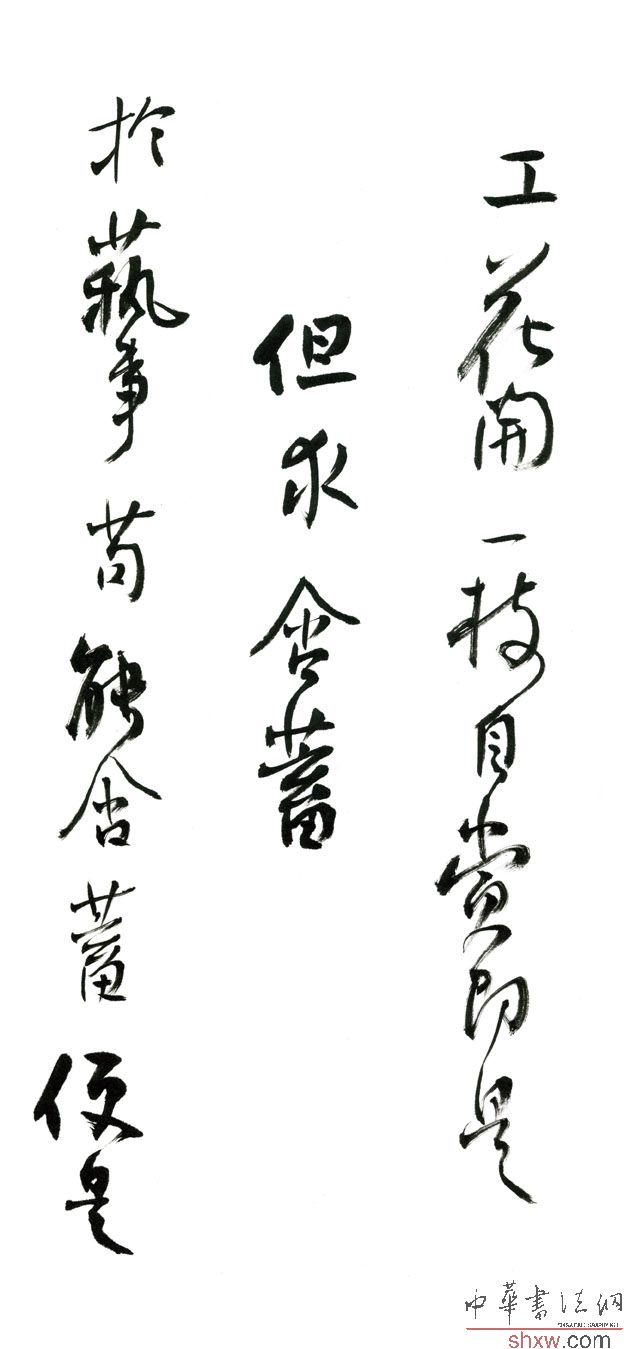 工花開一枝自賞即是
但求含蓄
於藝事苟能含蓄便是
中華書法網
shxw.com